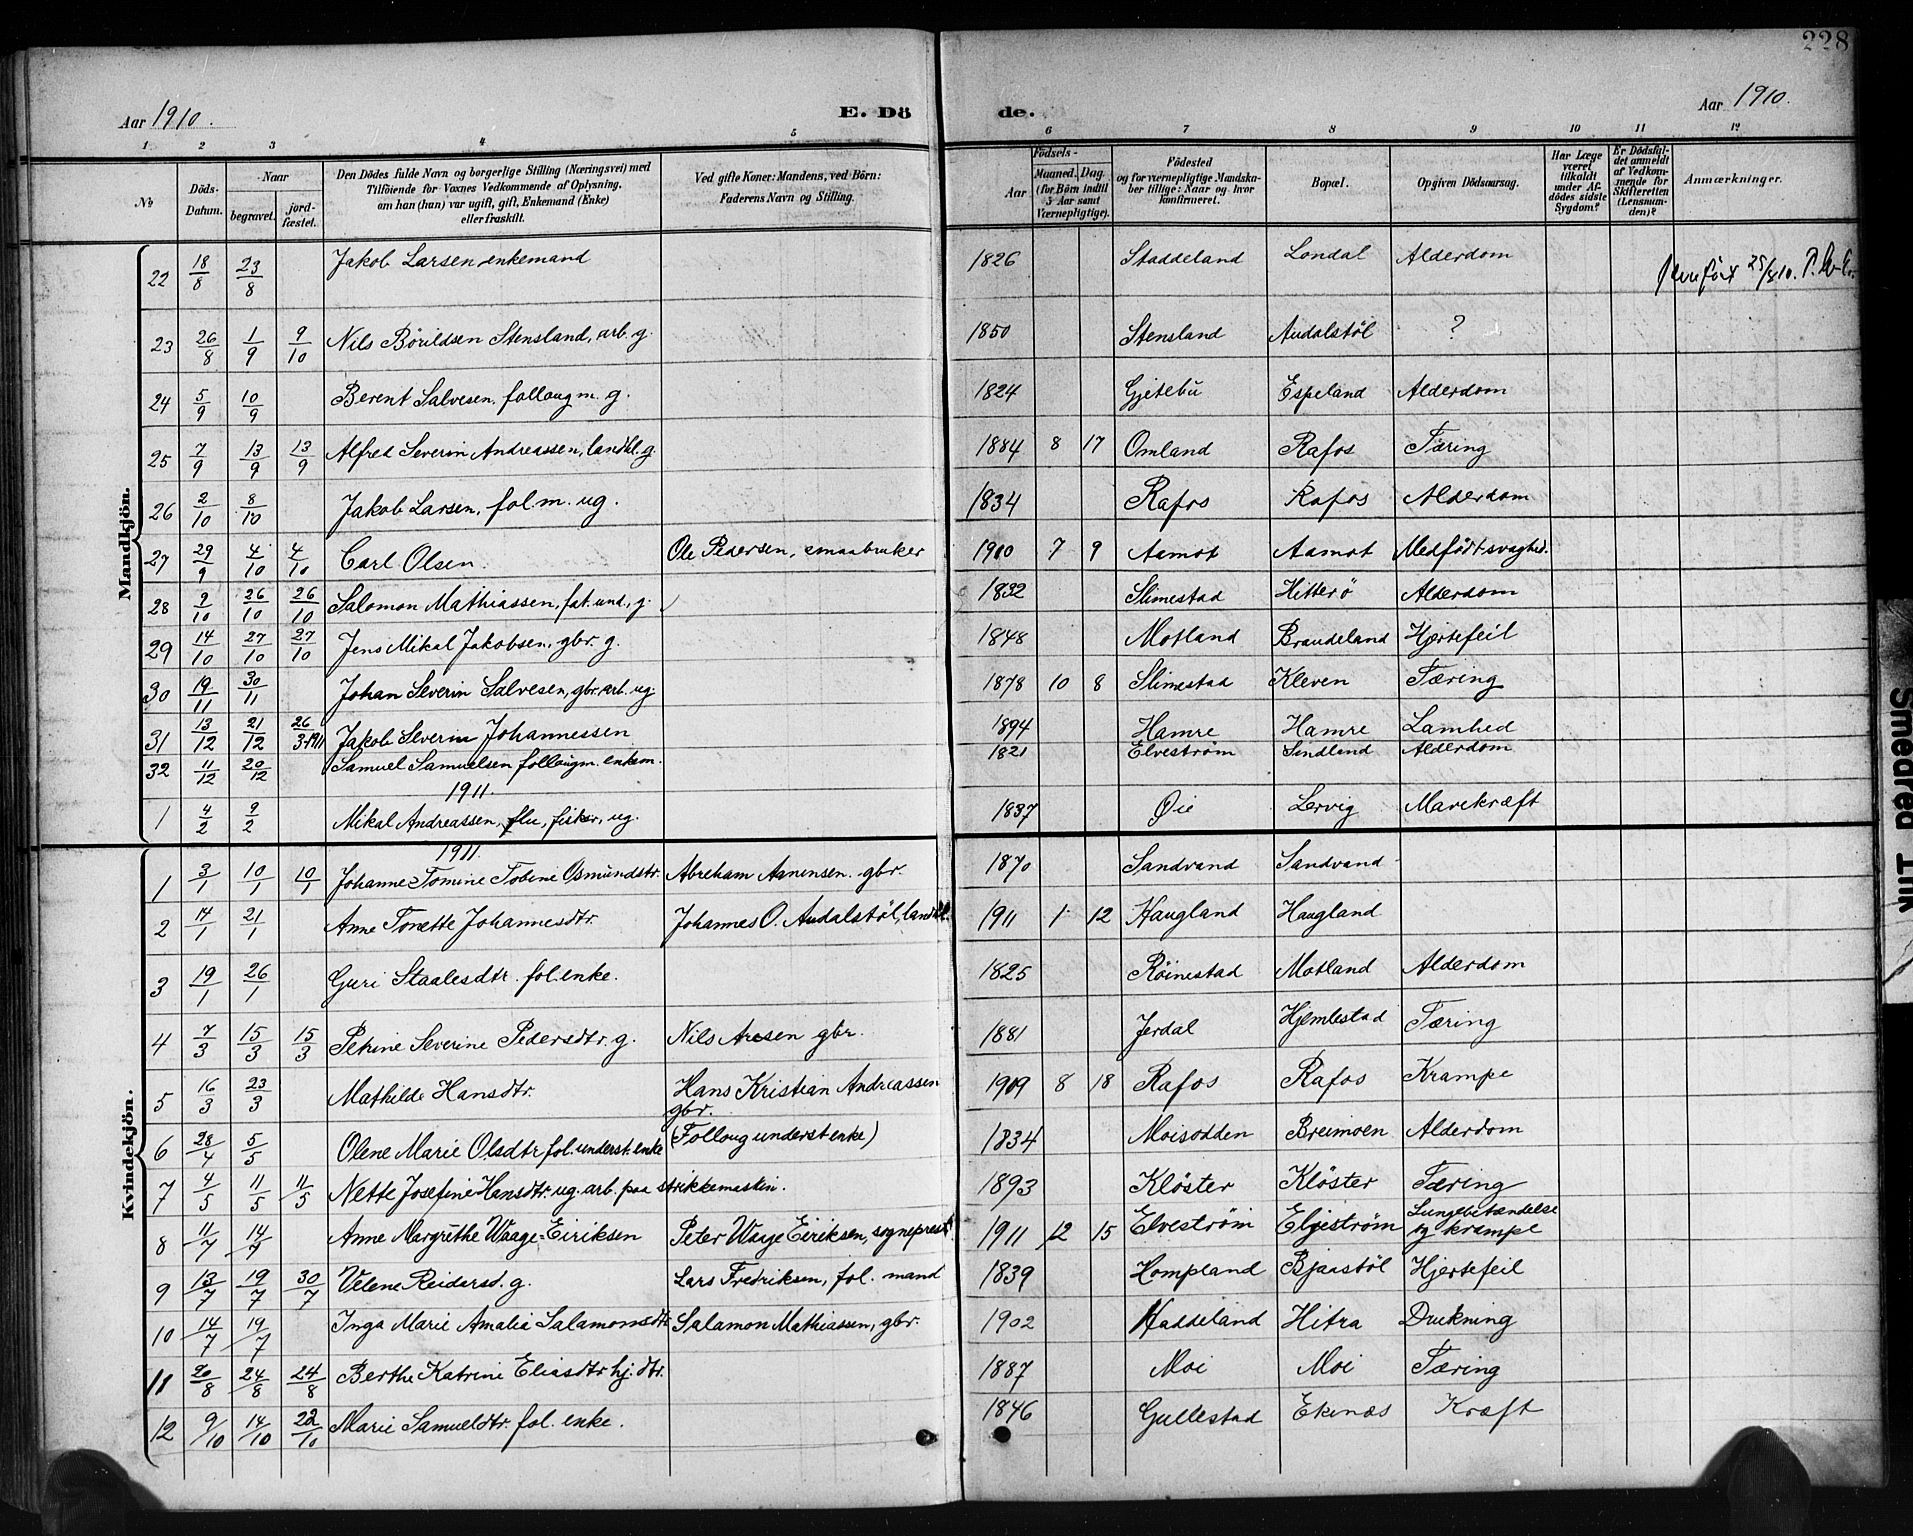 228
Aar 1910.
E. Dö
de.
Aar 1910.
1 2 3 4 5 6 7 8 9 10 11 12
No
Döds-Datum.
Naar
begravet.
jordfæstet.
Den Dödes fulde Navn og borgerlige Stilling (Næringsvei) med
Tilföiende for Voxnes Vedkommende af Oplysning.
om han (hun) var ugift, gift, Enkemand (Enke)
eller fraskilt.
Ved gifte Koner: Mandens, ved Börn:
Faderens Navn og Stilling.
Födsels-
Aar
Maaned. Dag.
(for Börn indtil
5 Aar samt
Værnepligtige).
Födested
og for værnepligtige Mandska-
ber tillige: Naar og hvor
konfirmeret.
Bopæl.
Opgiven Dödsaarsag.
Har Læge
været
tilkaldt
under Af-
dödes sidste
Sygdom?
Er Dödsfal-
det anmeldt
af Vedkom-
mende for
Skifteretten
(Lensman-
den)?
Anmærkninger.
Mandkjön.
22 18/8 23/8 Jakob Larsen enkemand 1826 Staddeland Londal Alderdom 25/8 10.
23 26/8 1/9 9/10 Nils Börildsen Stensland, arb. g. 1850 Stensland Audalstöl ?
24 5/9 10/9 Berent Salvesen, follougm. g. 1824 Gjetebu Espeland Alderdom
25 7/9 13/9 13/9 Alfred Severin Andreassen, landhl. g. 1884 8 17 Omland Rafos Tæring
26 2/10 8/10 Jakob Larsen, fol.m. ug. 1834 Rafos Rafos Alderdom
27 29/9 4/10 4/10 Carl Olsen. Ole Pedersen, smaabruker 1910 7 9 Aamot Aamot Medfödt svaghed.
28 9/10 26/10 26/10 Salomon Mathiassen, fat. und., g. 1832 Slimestad Hitterö Alderdom
29 14/10 27/10 27/10 Jens Mikal Jakobsen, gbr. g. 1848 Motland Braudeland Hjertefeil
30 19/11 30/11 Johan Severin Salvesen, gbr. arb. ug. 1878 10 8 Slimestad Kleven Tæring
31 13/12 21/12 26/3-1911 Jakob Severin Johannessen 1894 Hamre Hamre Lamhed
32 11/12 20/12 Samuel Samuelsen follougm. enkem. 1821 Elveström Sindland Alderdom
1911.
1 4/2 9/2 Mikal Andreassen, flu, fisker, ug. 1837 Øie Lervig Mavekræft
Kvindekjön.
1911.
1 3/1 10/1 10/1 Johanne Tomine Tobine Osmundstr. Abreham Asmonsen. gbr. 1870 Sandvand Sandvand
2 14/1 21/1 Anne Tonette Johannesdtr. Johannes O. Audalstöl, landhl. 1911 1 12 Haugland Haugland
3 19/1 26/1 Guri Staalesdtr. fol. enke. 1825 Röinestad Motland Alderdom
4 7/3 15/3 15/3 Petrine Severine Pedersdtr. g. Nils Aresen gbr. 1881 Jerdal Hjemlestad Tæring
5 16/3 23/3 Mathilde Hansdtr. Hans Kristian Andreassen gbr. 1909 8 18 Rafos Rafos Krampe
6 28/4 5/5 Olene Marie Olsdtr fol. underst. enke (Folloug underst enke) 1834 Moisodden Breimoen Alderdom
7 4/5 11/5 11/5 Nette Josefine Hansdtr. ug. arb. paa strikkemaskin. 1893 Klöster Klöster Tæring
8 11/7 14/7 Anne Margrethe Waage-Eiriksen Peter Waage Eiriksen, sogneprest 1911 12 15 Elveström Elveström Lungebetændelse og krampe
9 13/7 19/7 30/7 Velene Reidersd. g. Lars Fredriksen, fol. mand 1839 Hompland Bjaastöl Hjertefeil
10 14/7 19/7 Inga Marie Amalia Salamonsdtr. Salamon Mathiassen, gbr. 1902 Haddeland Hitra Drukning
11 20/8 24/8 24/8 Berthe Katrine Eliasdtr hj. dtr. 1887 Moi Moi Tæring
12 9/10 14/10 22/10 Marie Samueldtr. fol. enke. 1846 Gullestad Ekenæs Kræft
Smeared Ink